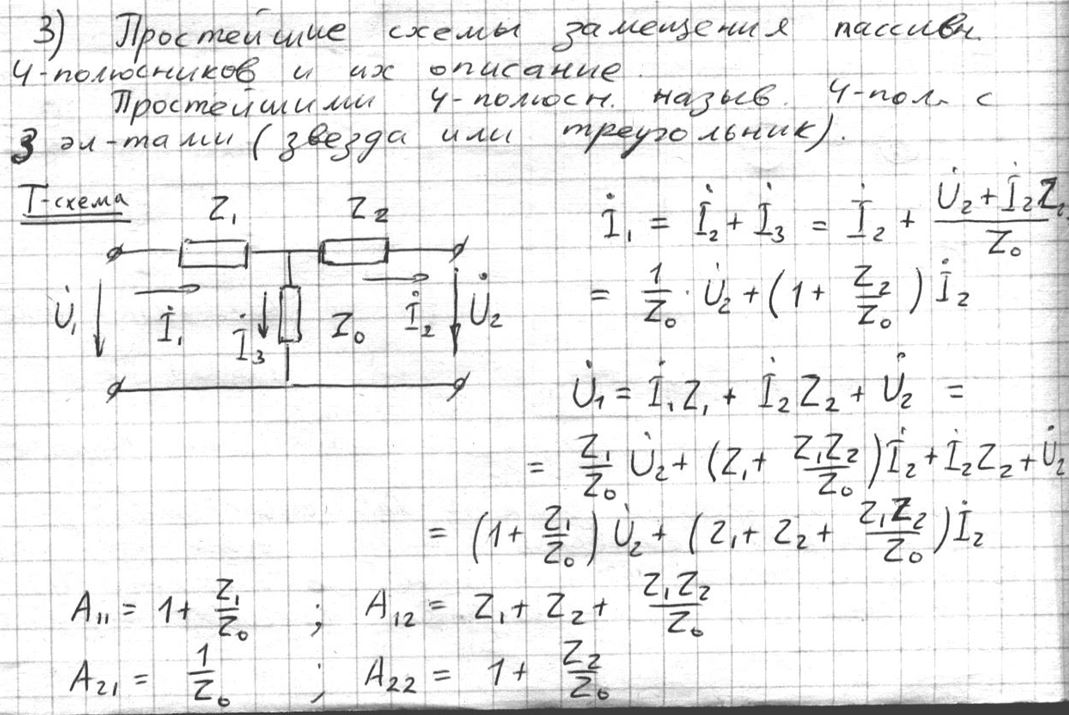 3) Простейшие схемы замещения пассивн.
4-полюсников и их описание.
Простейшими 4-полюсн. назыв. 4-пол. с
3 эл-тами (звезда или треугольник).
T-схема
Z₁ Z₂
U̇₁ İ₁ İ₃ Z₀ İ₂ U̇₂
İ₁ = İ₂ + İ₃ = İ₂ + (U̇₂ + İ₂Z₂)/Z₀
= 1/Z₀ · U̇₂ + (1 + Z₂/Z₀) İ₂
U̇₁ = İ₁Z₁ + İ₂Z₂ + U̇₂ =
= Z₁/Z₀ U̇₂ + (Z₁ + Z₁Z₂/Z₀) İ₂ + İ₂Z₂ + U̇₂
= (1 + Z₁/Z₀) U̇₂ + (Z₁ + Z₂ + Z₁Z₂/Z₀) İ₂
A₁₁ = 1 + Z₁/Z₀ ; A₁₂ = Z₁ + Z₂ + Z₁Z₂/Z₀
A₂₁ = 1/Z₀ ; A₂₂ = 1 + Z₂/Z₀